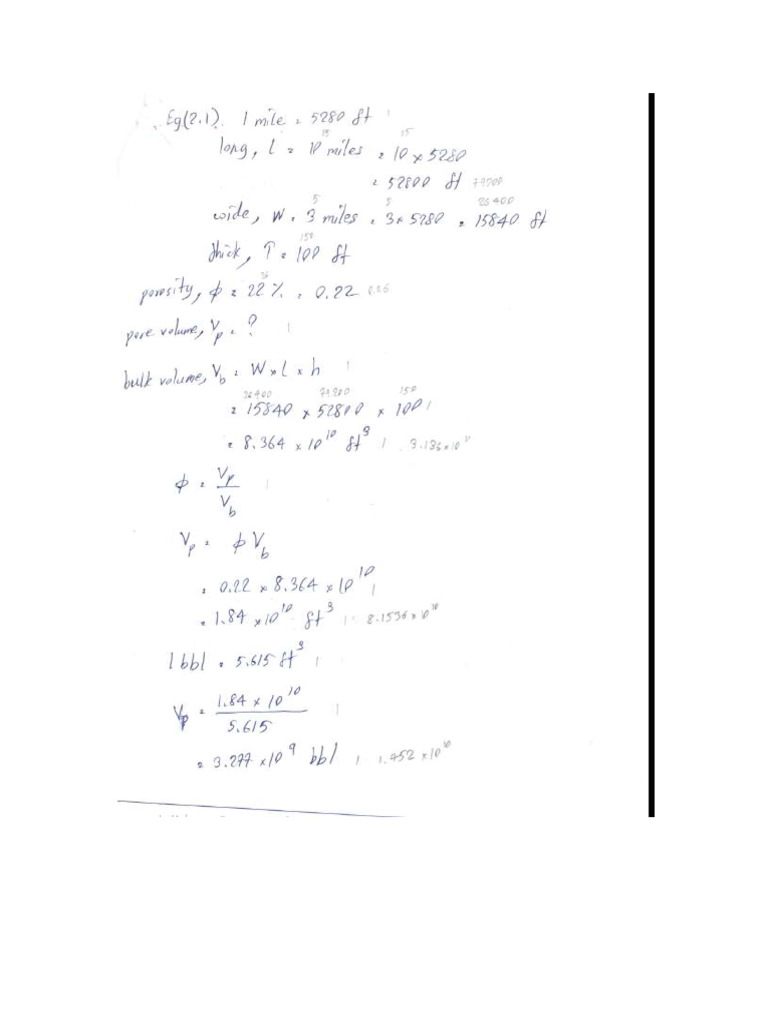 Eg(2.1). 1 mile = 5280 ft
15 15
long, L = 10 miles = 10 × 5280
= 52800 ft 79200
5 5 26400
wide, W = 3 miles = 3 × 5280 = 15840 ft
150
thick, T = 100 ft
26
porosity, φ = 22 % = 0.22 0.26
pore volume, Vp = ?
bulk volume, Vb = W × L × h
26400 79200 150
= 15840 × 52800 × 100
= 8.364 × 10^10 ft^3 3.136 × 10^11
φ = Vp / Vb
Vp = φ Vb
= 0.22 × 8.364 × 10^10
= 1.84 × 10^10 ft^3 8.1536 × 10^10
1 bbl = 5.615 ft^3
Vp = 1.84 × 10^10 / 5.615
= 3.277 × 10^9 bbl 1.452 × 10^10